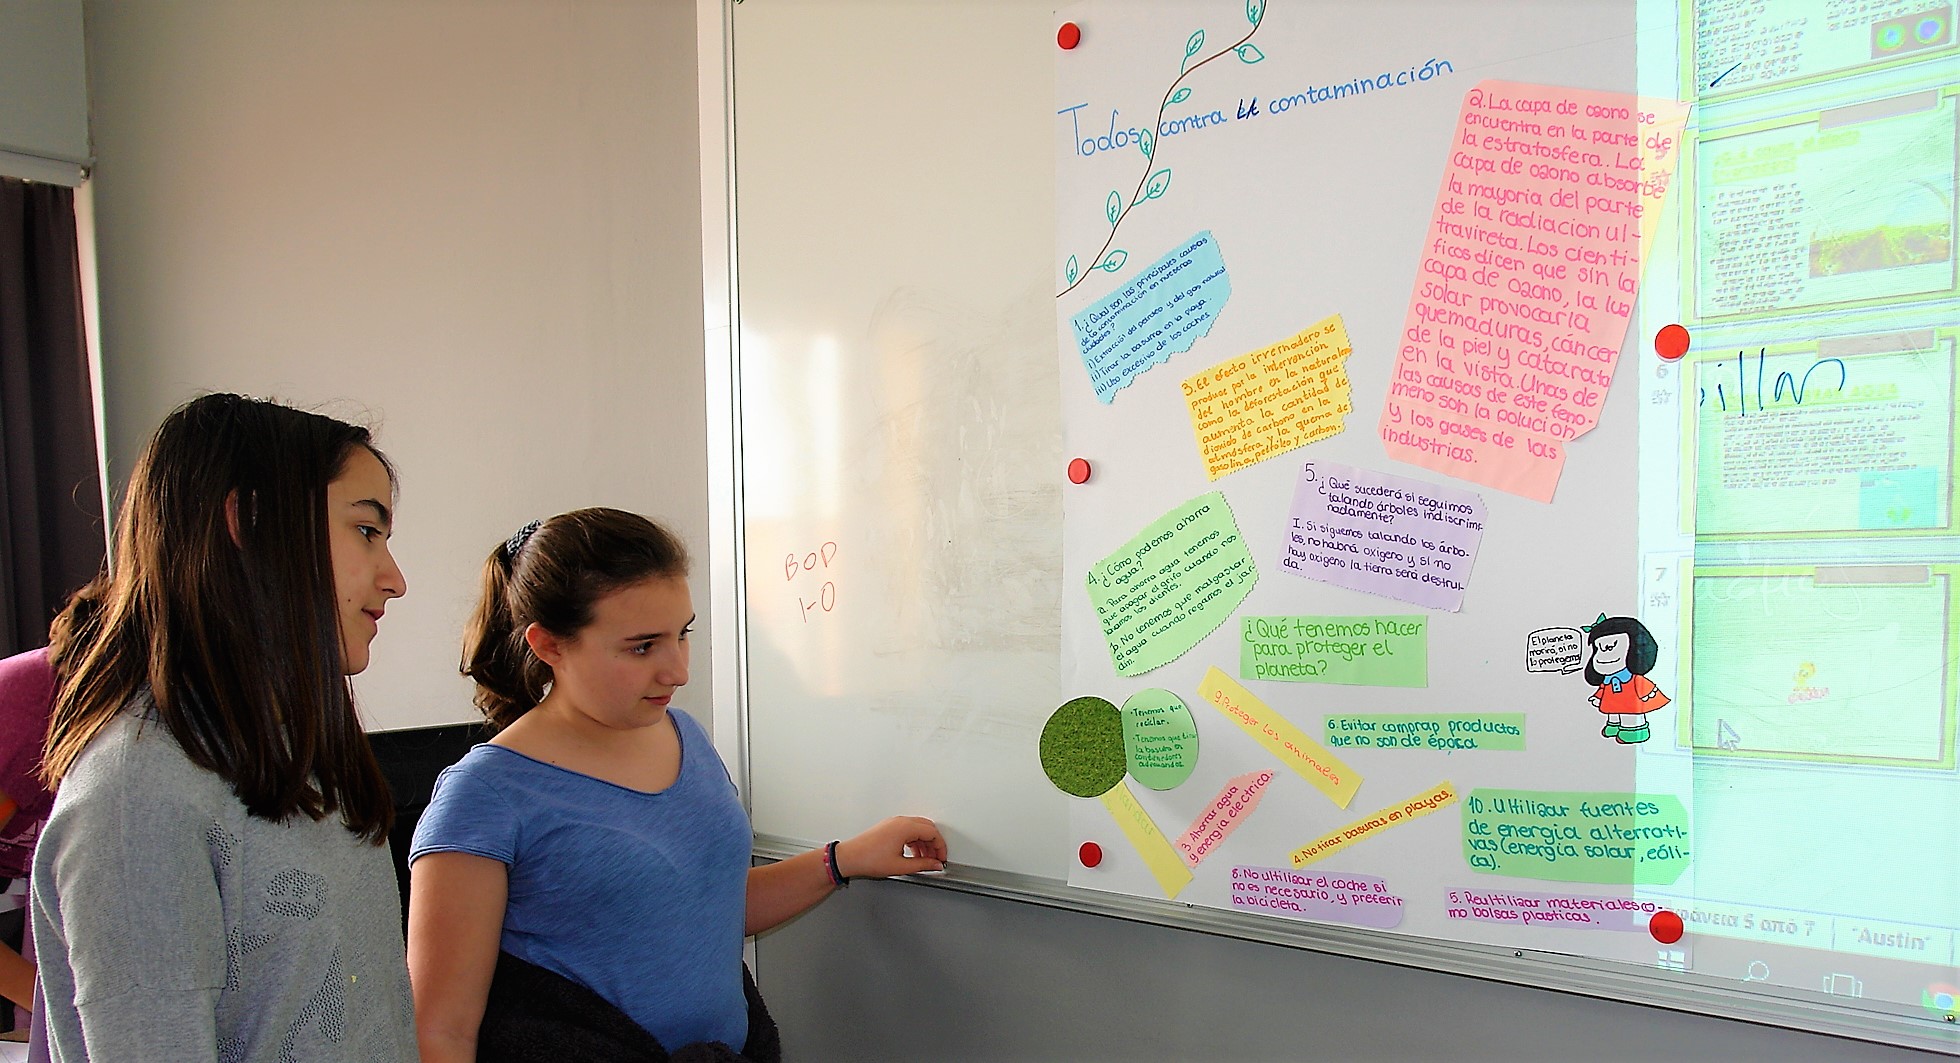 Todos contra LA contaminación
1. ¿Qual son las principales causas
de la contaminación en nuestras
ciudades?
i) Extracción del petroleo y del gas natural
ii) Tirar la basura en la playa.
iii) Uso excesivo de los coches
2. La capa de ozono se
encuentra en la parte de
la estratosfera. La
capa de ozono absorbe
la mayoria del parte
de la radiacion ul-
travireta. Los cienti-
ficos dicen que sin la
capa de ozono, la luz
solar provocaria
quemaduras, cáncer
de la piel y catarata
en la vista. Unas de
las causas de este feno-
meno son la polucion
y los gases de las
industrias.
3. El efecto invernadero se
produce por la intervención
del hombre en la naturaleza
como la deforestación que
aumenta la cantidad
dioxido de carbono en la
atmósfera y la quema de
gasolina, petróleo y carbon.
4. ¿Cómo podemos ahorra
agua?
a. Para ahorra agua tenemos
que apagar el grifo cuando nos
lavamos los dientes.
b. No tenemos que malgastar
el agua cuando regamos el jar-
din.
5. ¿Qué sucederá si seguimos
talando árboles indiscrimi-
nadamente?
I. Si siguemos talando los árbo-
les, no habrá oxigeno y si no
hay oxigeno la tierra será destrui-
da.
¿Qué tenemos hacer
para proteger el
planeta?
El planeta
morirá, si no
lo protegems
• Tenemos que
reciclar.
• Tenemos que tirar
la basura os
contenedores
adecuados.
9. Proteger los animales
6. Evitar comprar productos
que no son de época
3. Ahorrar agua
y energía electrica.
4. No tirar basuras en playas.
10. Ultilizar fuentes
de energia alterrati-
vas (energía solar, eóli-
ca).
8. No ultilizar el coche si
no es necesario, y preferir
la bicicleta.
5. Reultilizar materiales co-
mo bolsas plasticas.
BOD
1-0
illar
6
7
5 από 7
"Austin"